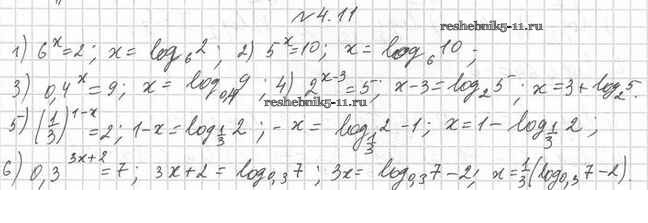 №4.11
reshebnik5-11.ru
1) 6^x=2; x = log_6 2; 2) 5^x=10; x = log_6 10;
3) 0,4^x = 9; x = log_0,4 9; 4) 2^(x-3) = 5; x-3 = log_2 5; x = 3 + log_2 5.
reshebnik5-11.ru
5) (1/3)^(1-x) = 2; 1-x = log_(1/3) 2; -x = log_(1/3) 2 -1; x = 1 - log_(1/3) 2;
6) 0,3^(3x+2) = 7; 3x+2 = log_0,3 7; 3x = log_0,3 7-2; x = 1/3 (log_0,3 7-2).